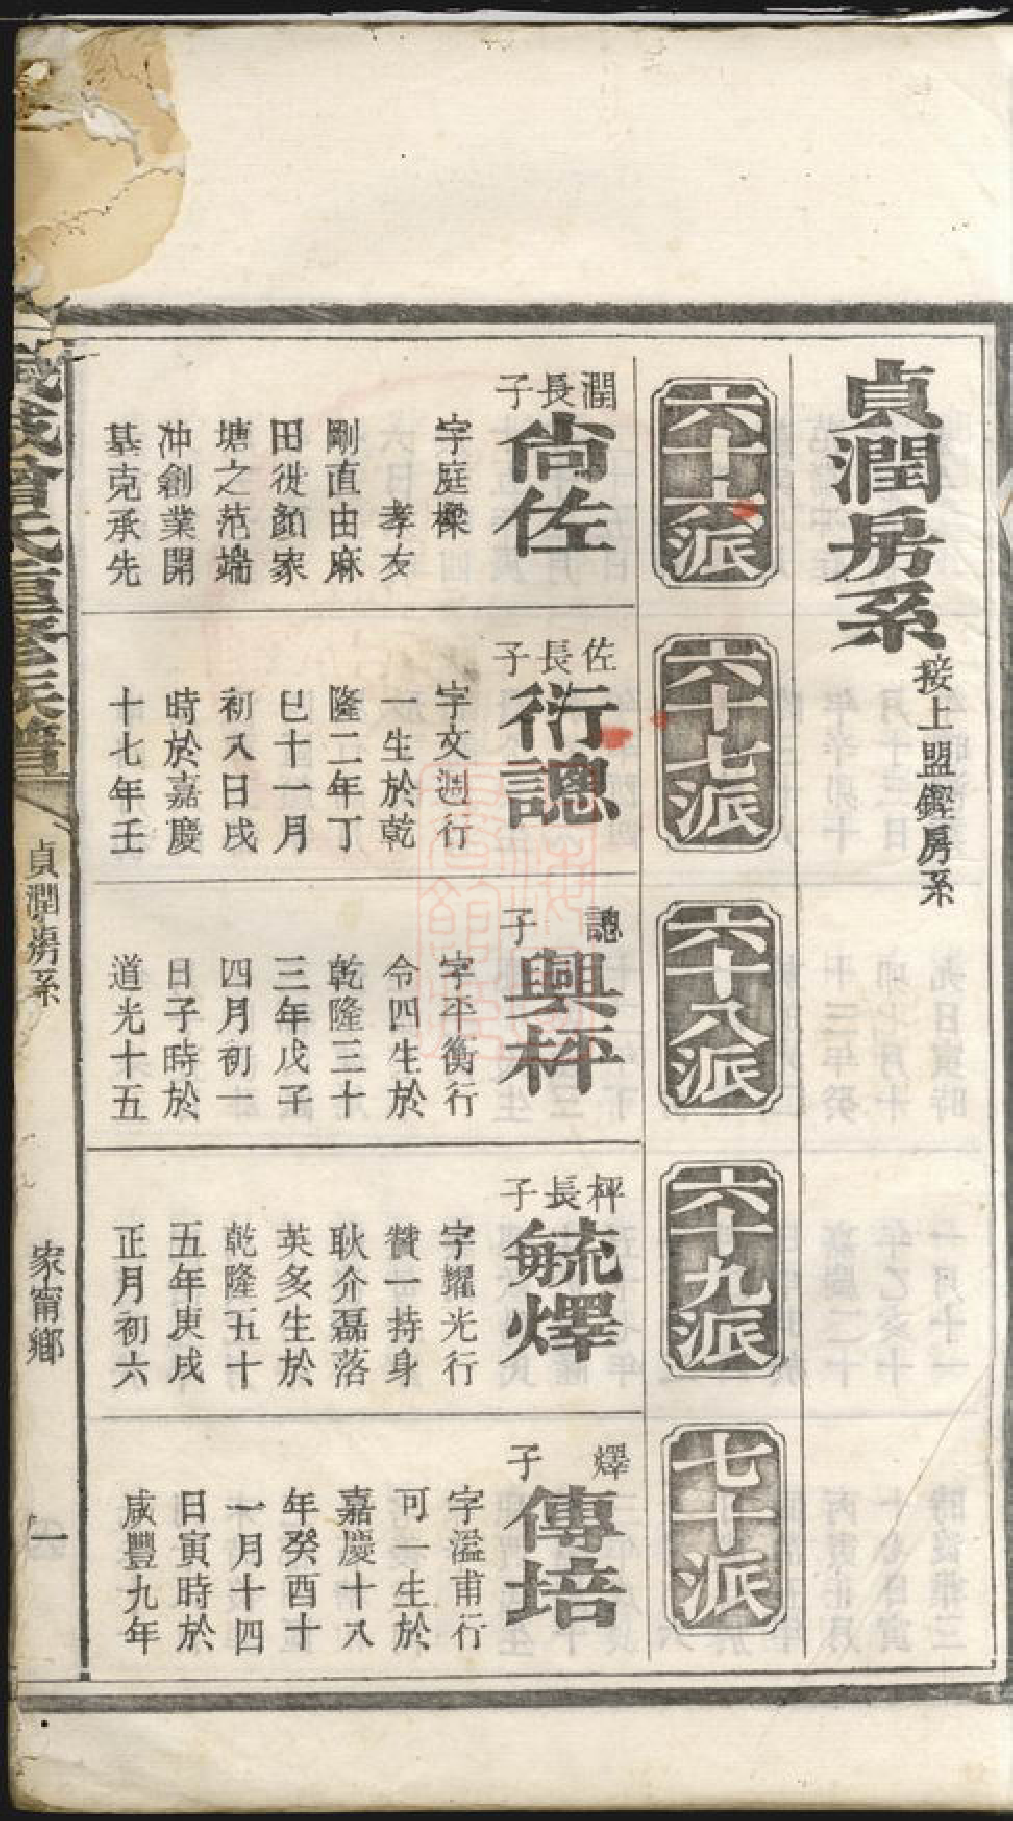 貞潤房系
接上盟鏗房系
六十六派
潤長子
尙佐
字庭樑
孝友
剛直由麻
田徙顏家
塘之范端
冲創業開
基克承先
六十七派
佐長子
衍謥
字文週行
一生於乾
隆二年丁
巳十一月
初入日戌
時於嘉慶
十七年壬
六十八派
謥子
興枰
字平衡行
令四生於
乾隆三十
三年戊子
四月初一
日子時於
道光十五
六十九派
枰長子
毓燡
字耀光行
贊一持身
耿介磊落
英多生於
乾隆五十
五年庚戌
正月初六
七十派
燡子
傳培
字溢甫行
可一生於
嘉慶十八
年癸酉十
一月十四
日寅時於
咸豐九年
曾氏重修族譜
貞潤房系
家甯鄉
一